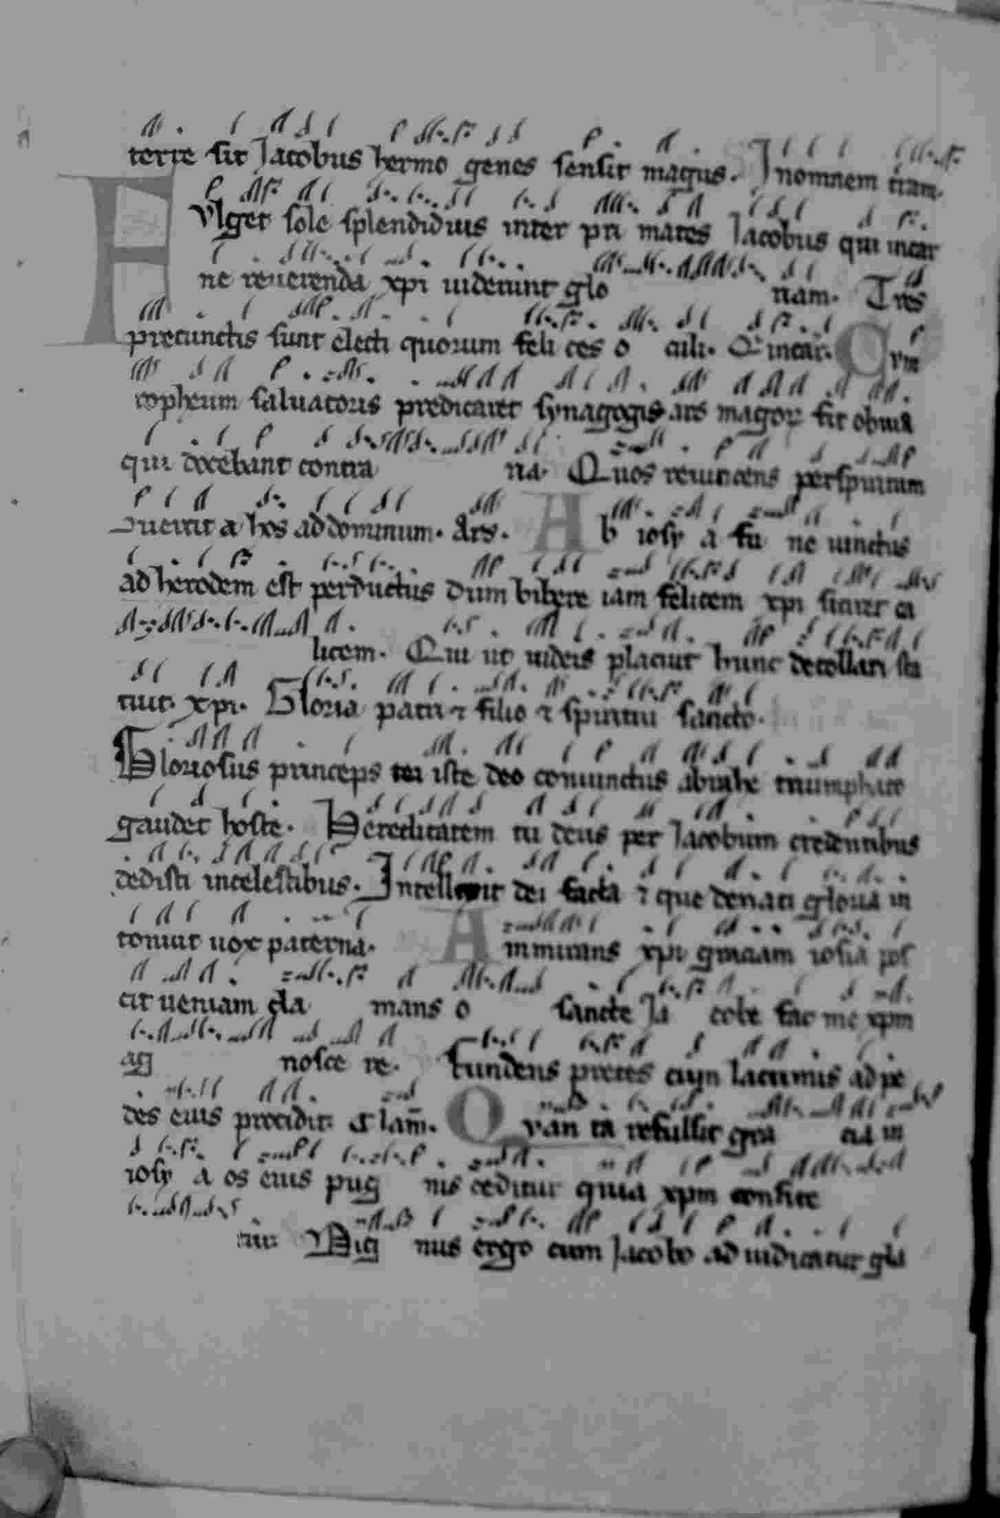 terre sit Jacobus hermo genes sensit magus. Jnomnem tram.
FVlget sole splendidius inter pri mates Jacobus qui incar
ne reuerenda xpi uiderunt glo riam. Tres
precunctis sunt electi quorum feli ces o culi. Q incar. Cvm
tropheum saluatoris predicaret synagogis ars magor fit obuia
qui docebant contra ria. Quos reuincens perspiritum
ad dominum. Ars. Ab iosy a fu ne uinctus
ad herodem est perductus dum bibere iam felicem xpi sitiret ca
licem. Cui ut uideis placiut hunc decollari sta
tiut. xpi. Gloria patri ⁊ filio ⁊ spiritui sancto.
Gloriosus princeps iste deo coniunctus abrahe triumphato
gaudet hoste. Hereditatem tu deus per Jacobum credentibus
dedisti incelestibus. Jntellexit dei facta ⁊ que gloria in
tonuit uox paterna. Ammirans xpi iosia pos
cit ueniam cla mans o sancte Ja cobe fac me xpm
ag nosce re. Fundens preces cum lacrimis ad pe
des eius procidit. Clam. Qvan ta refulsit gra cia in
iosy a os eius pug nis ceditur quia xpm confite
tur. Dig nus ergo cum Jacobo ad iudicatur gla